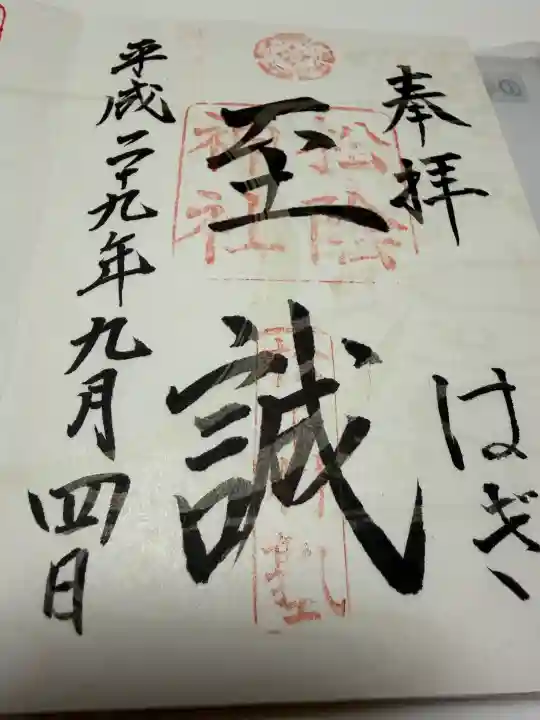 奉拝
はぎ
至誠
松陰
神社
平成二十九年九月四日